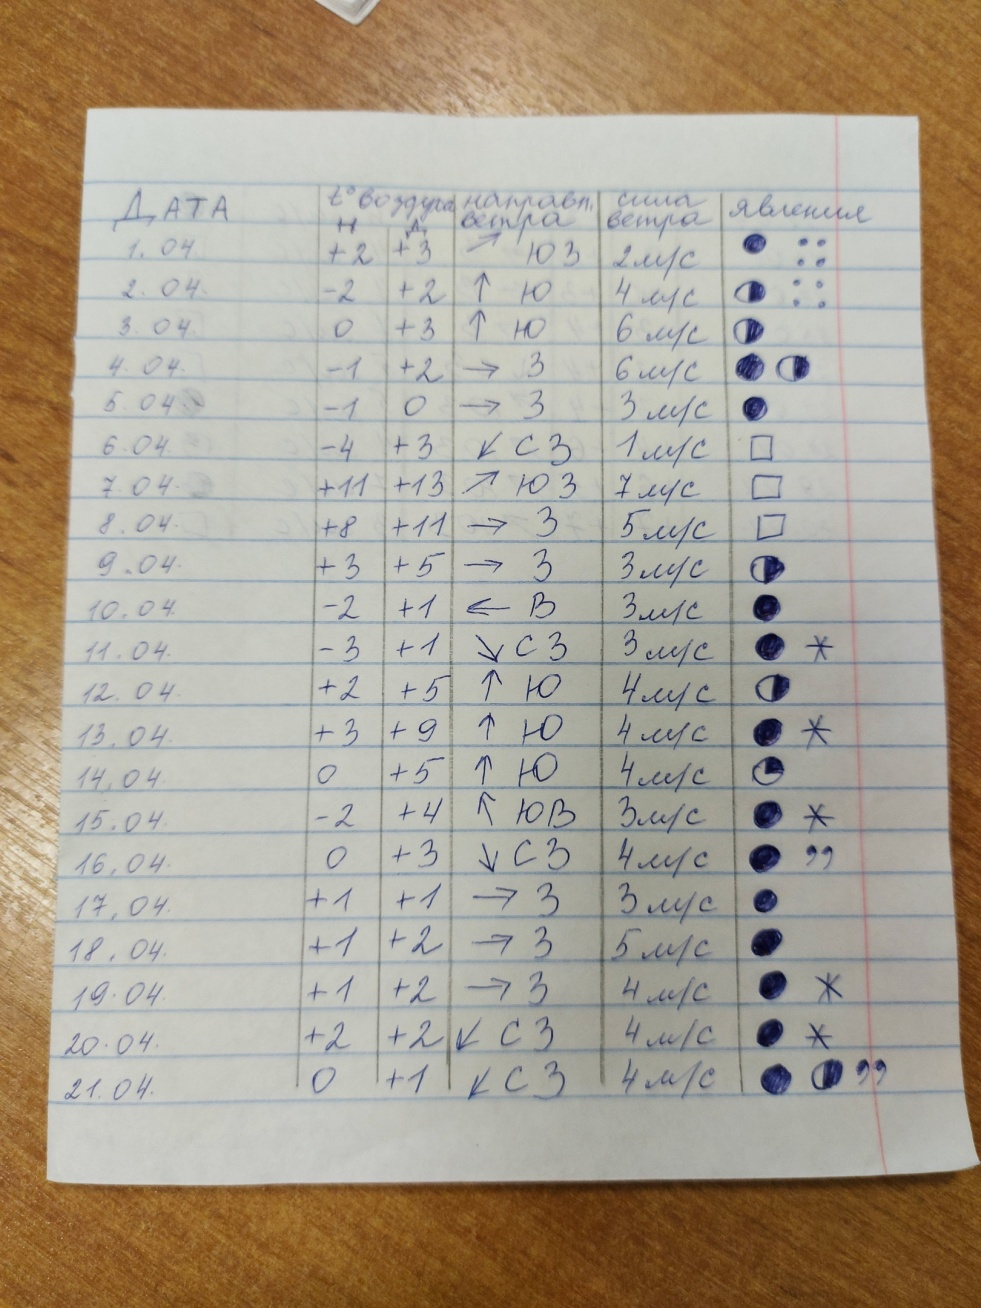 ДАТА t° воздуха направл. сила явления
н д ветра ветра
1.04. +2 +3 ↗ ЮЗ 2 м/с
2.04. -2 +2 ↑ Ю 4 м/с
3.04. 0 +3 ↑ Ю 6 м/с
4.04. -1 +2 → З 6 м/с
5.04. -1 0 → З 3 м/с
6.04. -4 +3 ↙ СЗ 1 м/с
7.04. +11 +13 ↗ ЮЗ 7 м/с
8.04. +8 +11 → З 5 м/с
9.04. +3 +5 → З 3 м/с
10.04. -2 +1 ← В 3 м/с
11.04. -3 +1 ↘ СЗ 3 м/с *
12.04. +2 +5 ↑ Ю 4 м/с
13.04. +3 +9 ↑ Ю 4 м/с *
14.04. 0 +5 ↑ Ю 4 м/с
15.04. -2 +4 ↖ ЮВ 3 м/с *
16.04. 0 +3 ↘ СЗ 4 м/с ,,
17.04. +1 +1 → З 3 м/с
18.04. +1 +2 → З 5 м/с
19.04. +1 +2 → З 4 м/с *
20.04. +2 +2 ↙ СЗ 4 м/с *
21.04. 0 +1 ↙ СЗ 4 м/с ,,